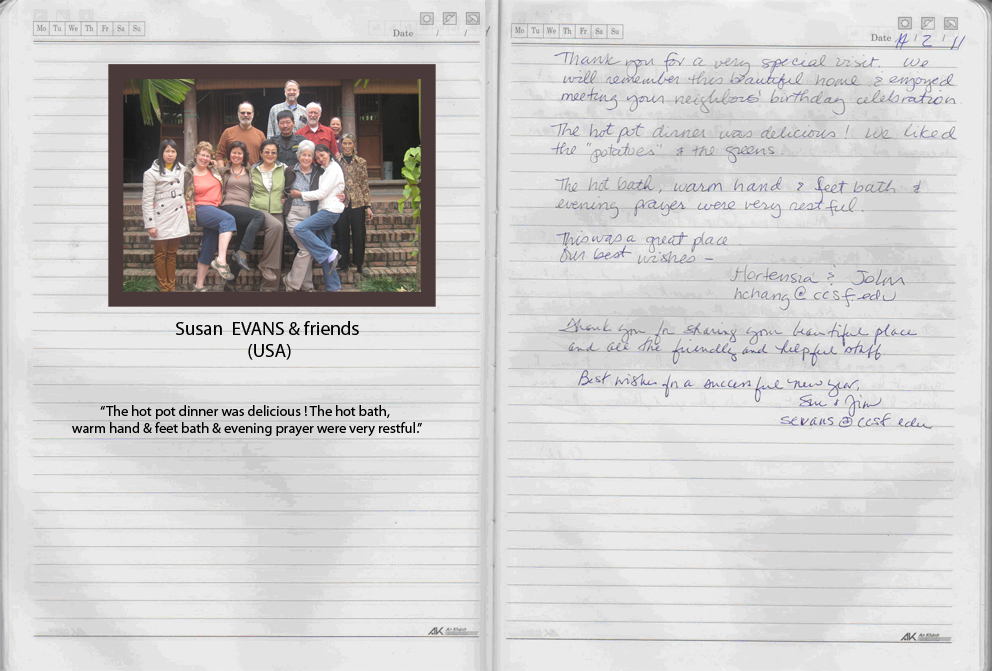 Mo Tu We Th Fr Sa Su
Date / /
Susan EVANS & friends
(USA)
“The hot pot dinner was delicious ! The hot bath,
warm hand & feet bath & evening prayer were very restful.”
AK An Khánh
Mo Tu We Th Fr Sa Su
Date 14 / 2 / 11
Thank you for a very special visit. We
will remember this beautiful home & enjoyed
meeting your neighbors' birthday celebration
The hot pot dinner was delicious! We liked
the "potatoes" & the greens
The hot bath, warm hand & feet bath &
evening prayer were very restful.
This was a great place
Our best wishes –
Hortensia & John
hchang@ccsf.edu
Thank you for sharing your beautiful place
and all the friendly and helpful staff
Best wishes for a successful new year,
Sue & Jim
sevans@ccsf.edu
AK An Khánh